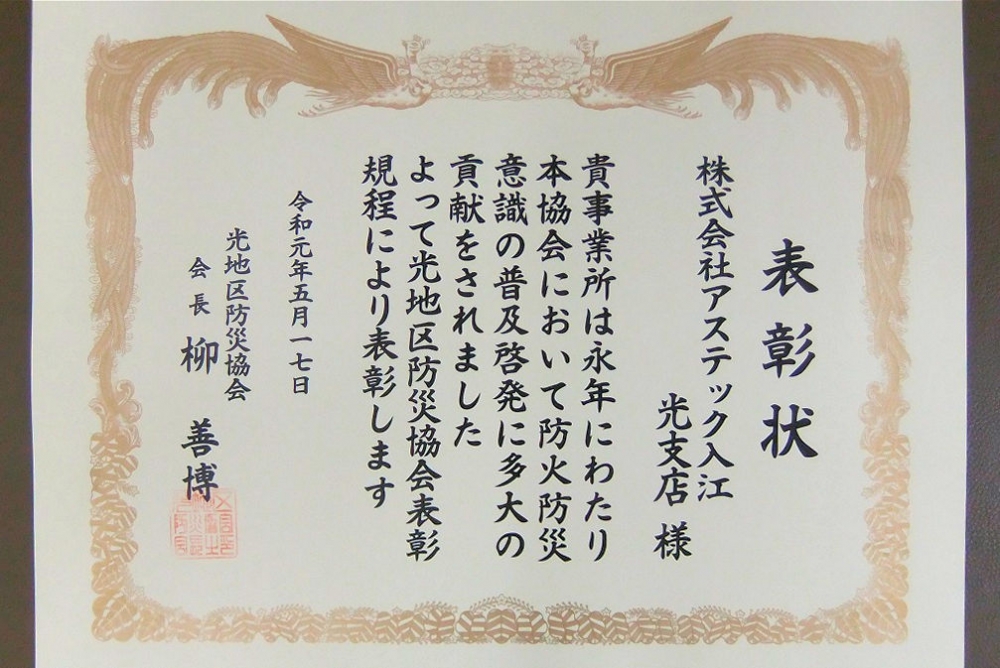 表彰状
株式会社アステック入江
光支店 様
貴事業所は永年にわたり
本協会において防火防災
意識の普及啓発に多大の
貢献をされました
よって光地区防災協会表彰
規程により表彰します
令和元年五月一七日
光地区防災協会
会長 柳 善博